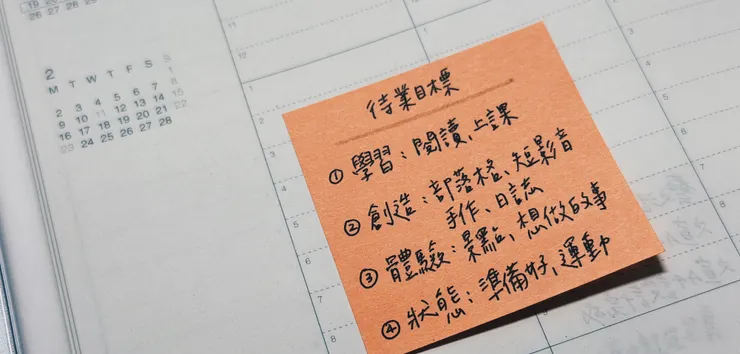 19 20
26 27 28 29 30
2
M T W T F S S
1
2 3 4 5 6 7 8
9 10 11 12 13 14 15
16 17 18 19 20 21 22
23 24 25 26 27 28
11
12
1
2
3
4
5
6
7
8
待業目標
① 學習：閱讀、上課
② 創造：部落格、短影音
手作、日誌
③ 體驗：景點、想做的事
④ 狀態：準備好、運動